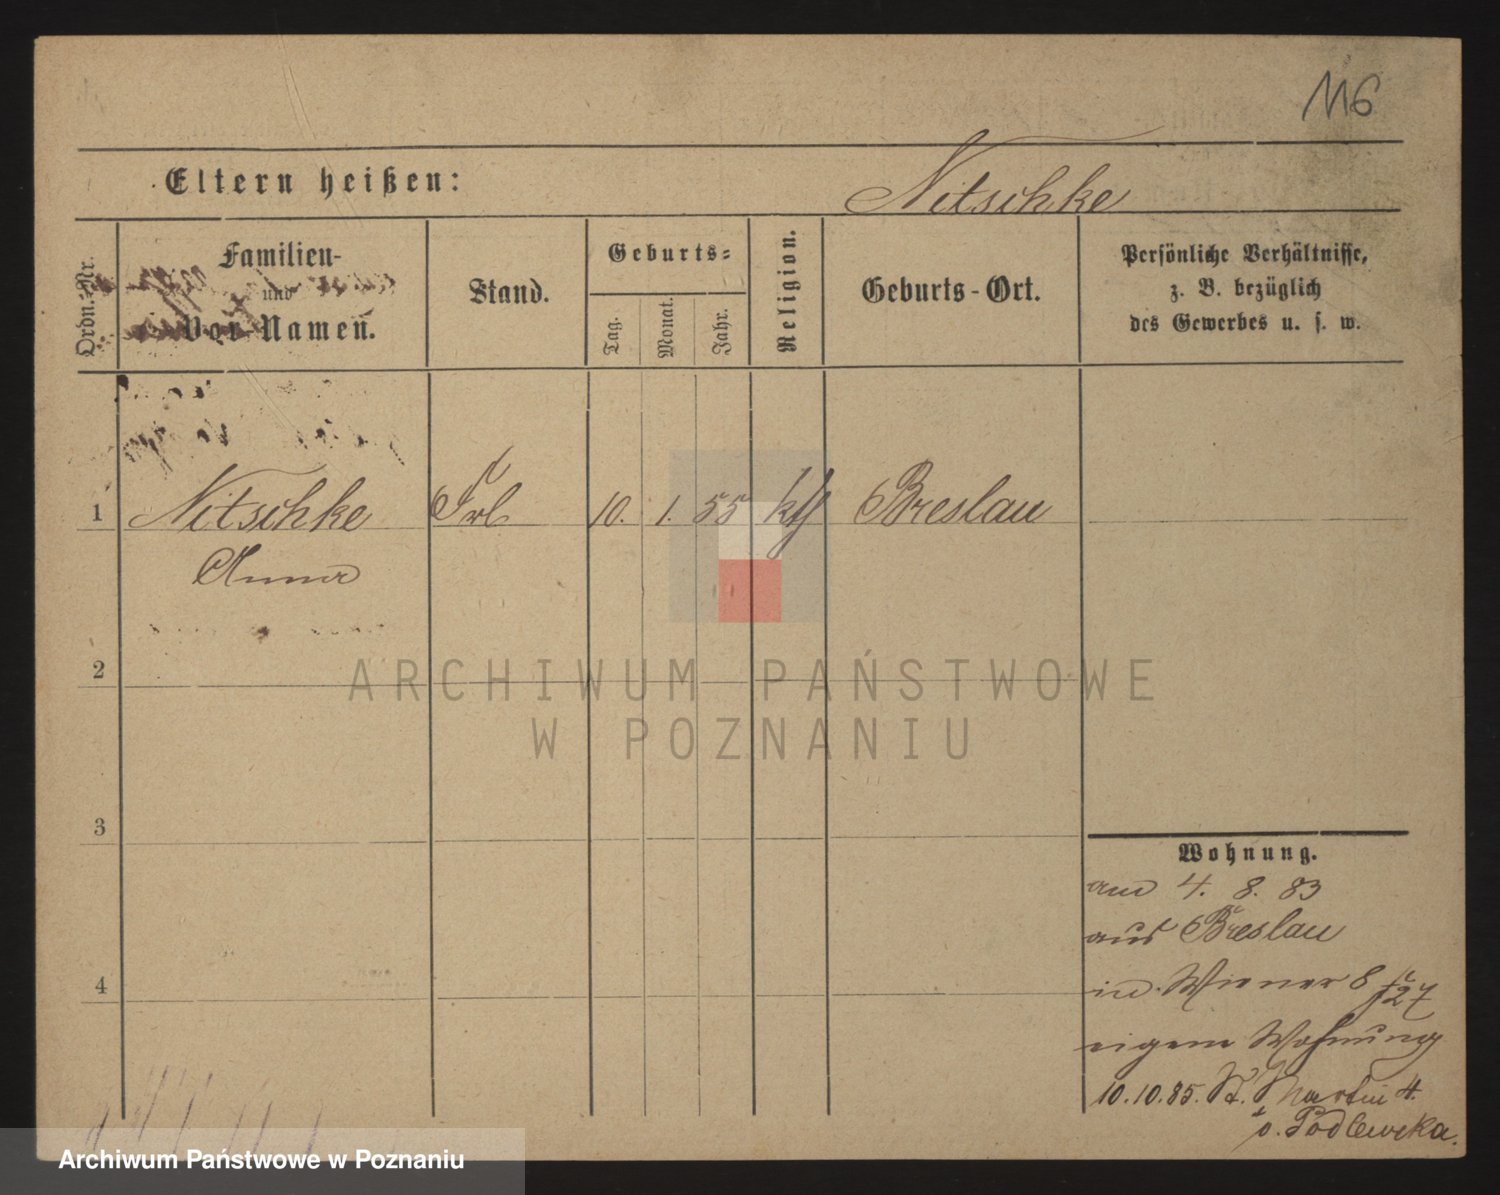 116
Eltern heißen:
Nitschke
Ordn.-Nr.
Familien-
und
Vor-Namen.
Stand.
Geburts-
Tag.
Monat.
Jahr.
Religion.
Geburts-Ort.
Persönliche Verhältnisse,
z. B. bezüglich
des Gewerbes u. s. w.
1 Nitschke Frl 10. 1. 55 kth Breslau
Anna
2
ARCHIWUM PAŃSTWOWE
W POZNANIU
3
Wohnung.
4. 8. 83
aus Breslau
in Wiener 8
eigene Wohnung
4
10.10.85. St. Martin 4.
b. Podlewska.
Archiwum Państwowe w Poznaniu